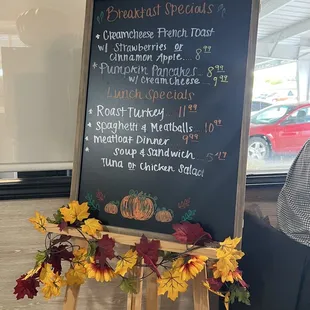 Breakfast Specials
* Creamcheese French Toast
w/ Strawberries or
Cinnamon Apple.... 8.99
* Pumpkin Pancakes 8.99
w/ Creamcheese 9.99
Lunch Specials
* Roast Turkey 11.99
* Spaghetti & Meatballs 10.99
* meatloaf Dinner 9.99
Soup & Sandwich
Tuna or Chicken Salad